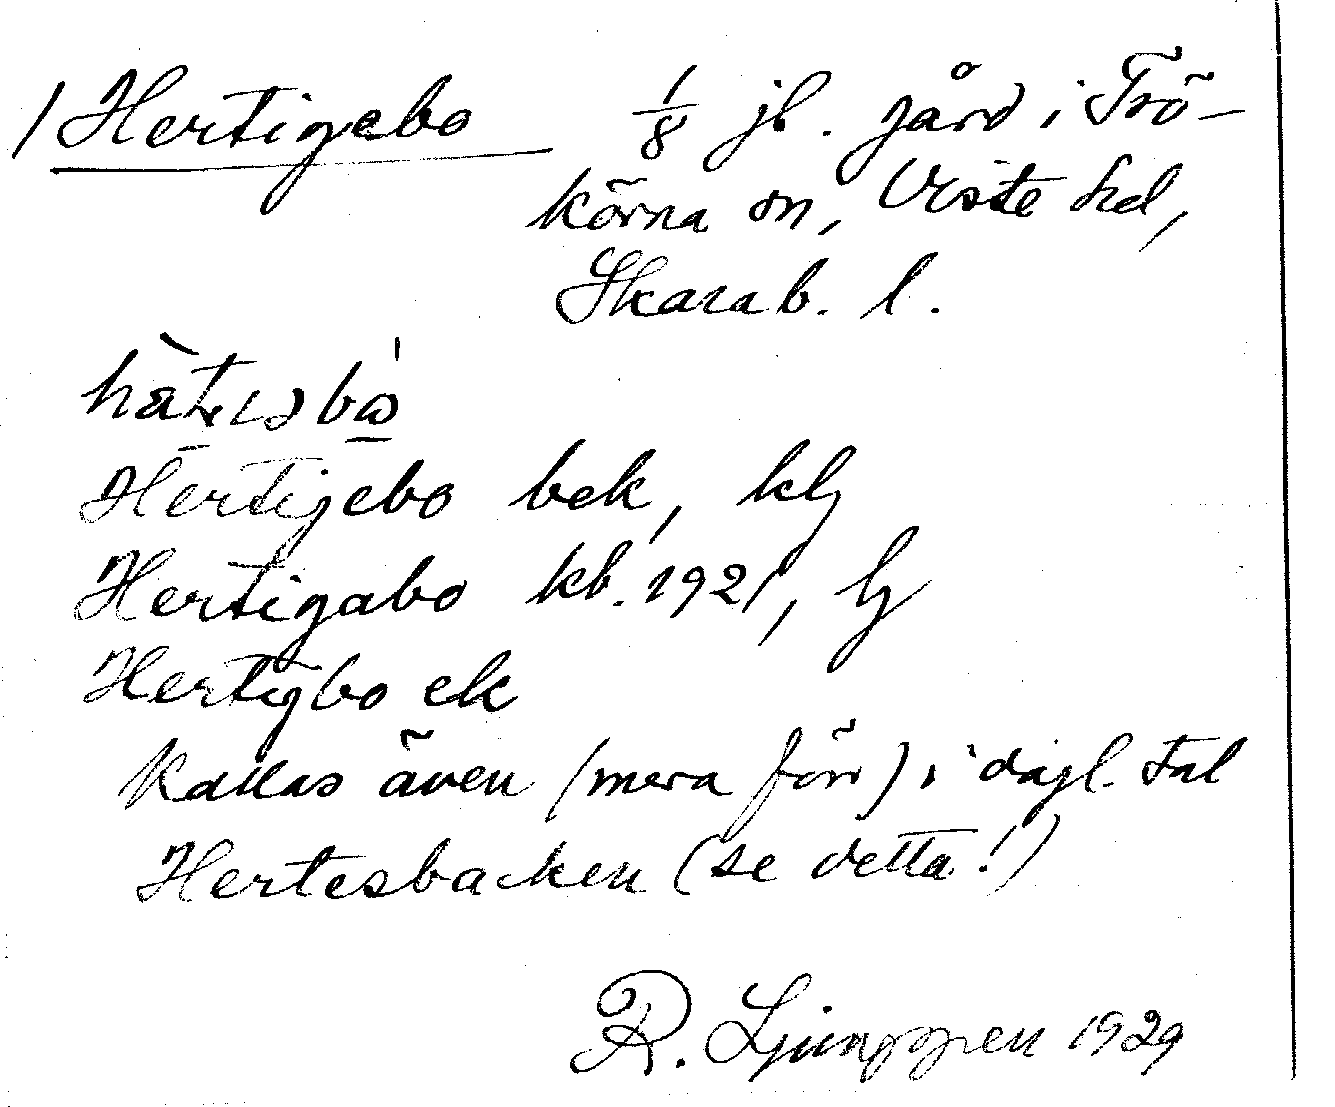 / Hertigebo 1/8 jb. gård i Trö-
körna sn, Viste hd,
Skarab. l.
Hertigebo bek, klj
Hertigabo kb. 1921, lj
Hertigbo ek
Kallas även (mera förr) i dagl. tal
Hertesbacken (se detta!)
R. Ljunggren 1929